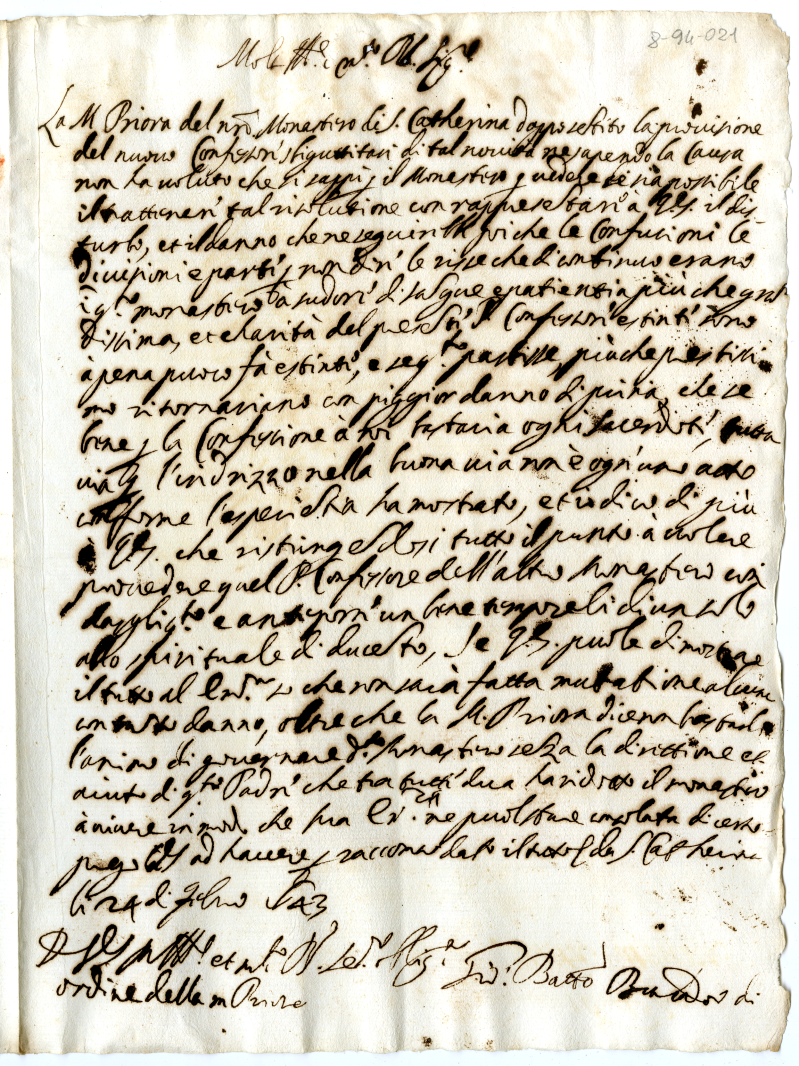 8-94-021
Molt Ill.e m.o R. Sig.r
La M Priora del nro Monastero di S. Catherina doppo sentito la provisione
del nuovo Confessor, sbiguttitasi di tal novità ne sapendo la Causa
non ha voluto che si sappi p il Monastero p vedere se sia possibile
il trattener tal risolutione con rappresentar à V.S. il dis-
turbo, et il danno che ne seguirà poiche le Confusioni le
divisioni e parti p non dir le risse che di continuo erano
in q.to monastero à sudori di sangue e patientia più che gran
dissima, et charità del Confessori estinti sono
à pena puoco fà estinti, e se q.to partisse, più che prestissi
mo ritornariano con piggior danno di prima, che se
bene p la Confessione à noi bastaria ogni sacerdoti, tutta
via p l'indrizzo nella buona via non è ogn'uno atto
conforme l'esperienza ha mostrato, et io dico di più
à V.S. che ristringendosi tutto il punto à volere
provedere quel P. Confessore dell'altro Monastero con
dargli q.to e anteporre un bene temporeli di un solo
allo spirituale di ducento, Se V.S. puole dimostrare
il tutto al so che non sarà fatta mutatione alcuna
con tanto danno, oltre che la M. Priora dice non bastarli
l'animo di governare d.to Monastero senza la dirittione et
aiuto di q.to Padri che tra tutti dua ha ridotto il monastero
à vivere in modo che sua ne puol stare consolata di certo.
prego V.S. ad havere p raccomandato il tutto da S. Catherina
li 24 di Febro 1643
D V.S. M Ill.e et m.to R.
Batto di
ordine della m Priora